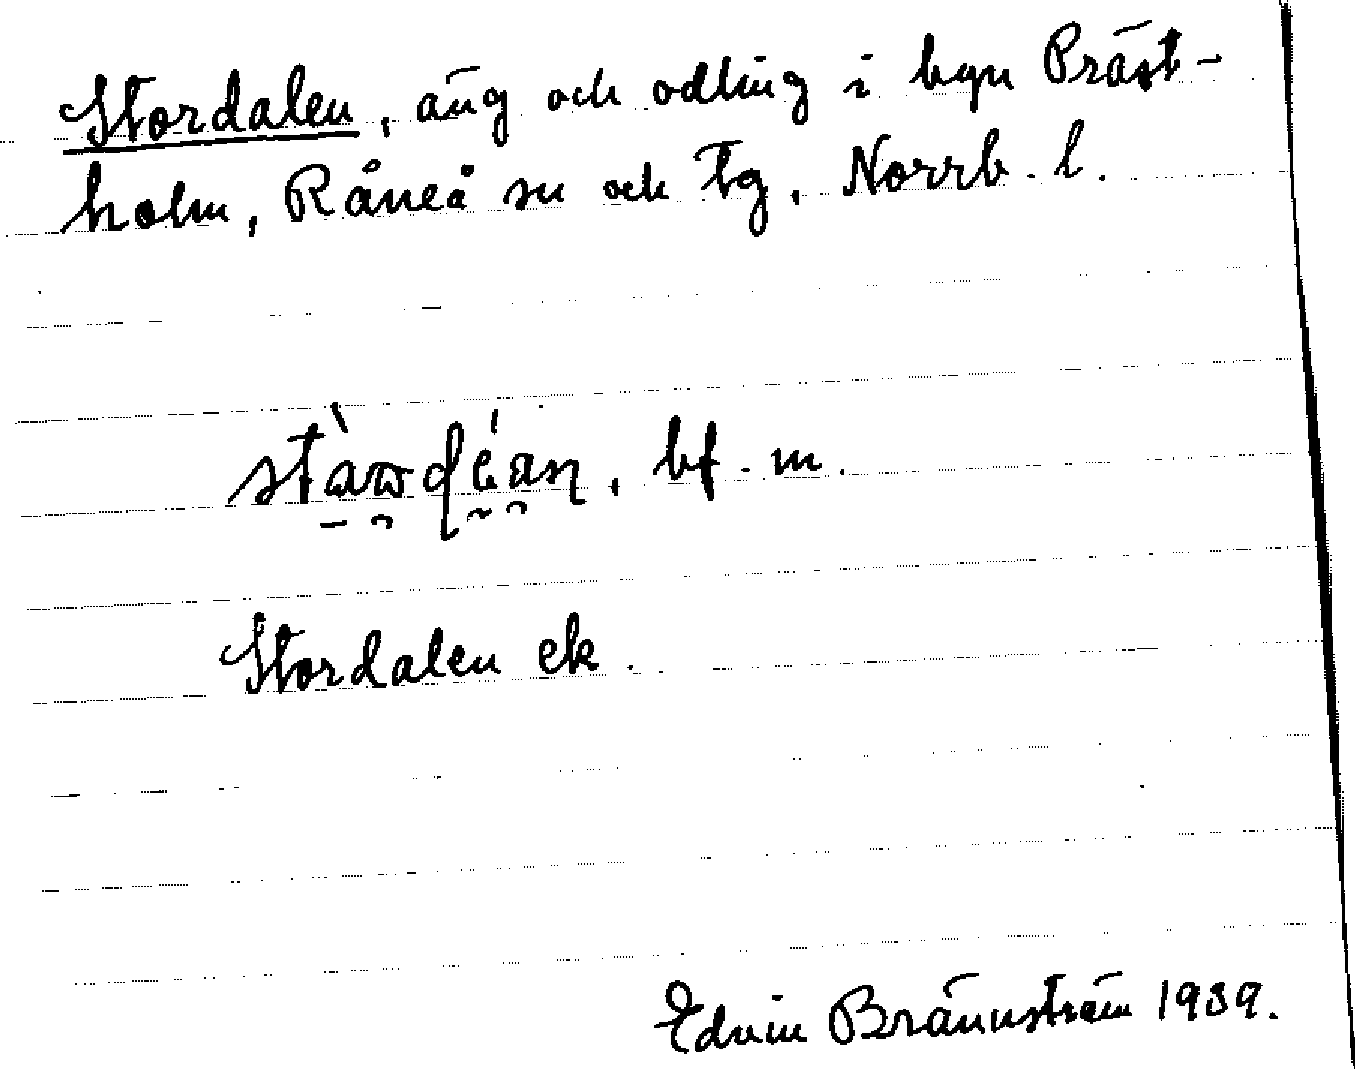 Stordalen, äng och odling i byn Präst-
holm, Råneå sn och tg. Norrb. l.
bf. m.
Stordalen ek.
Edvin Brännström 1939.